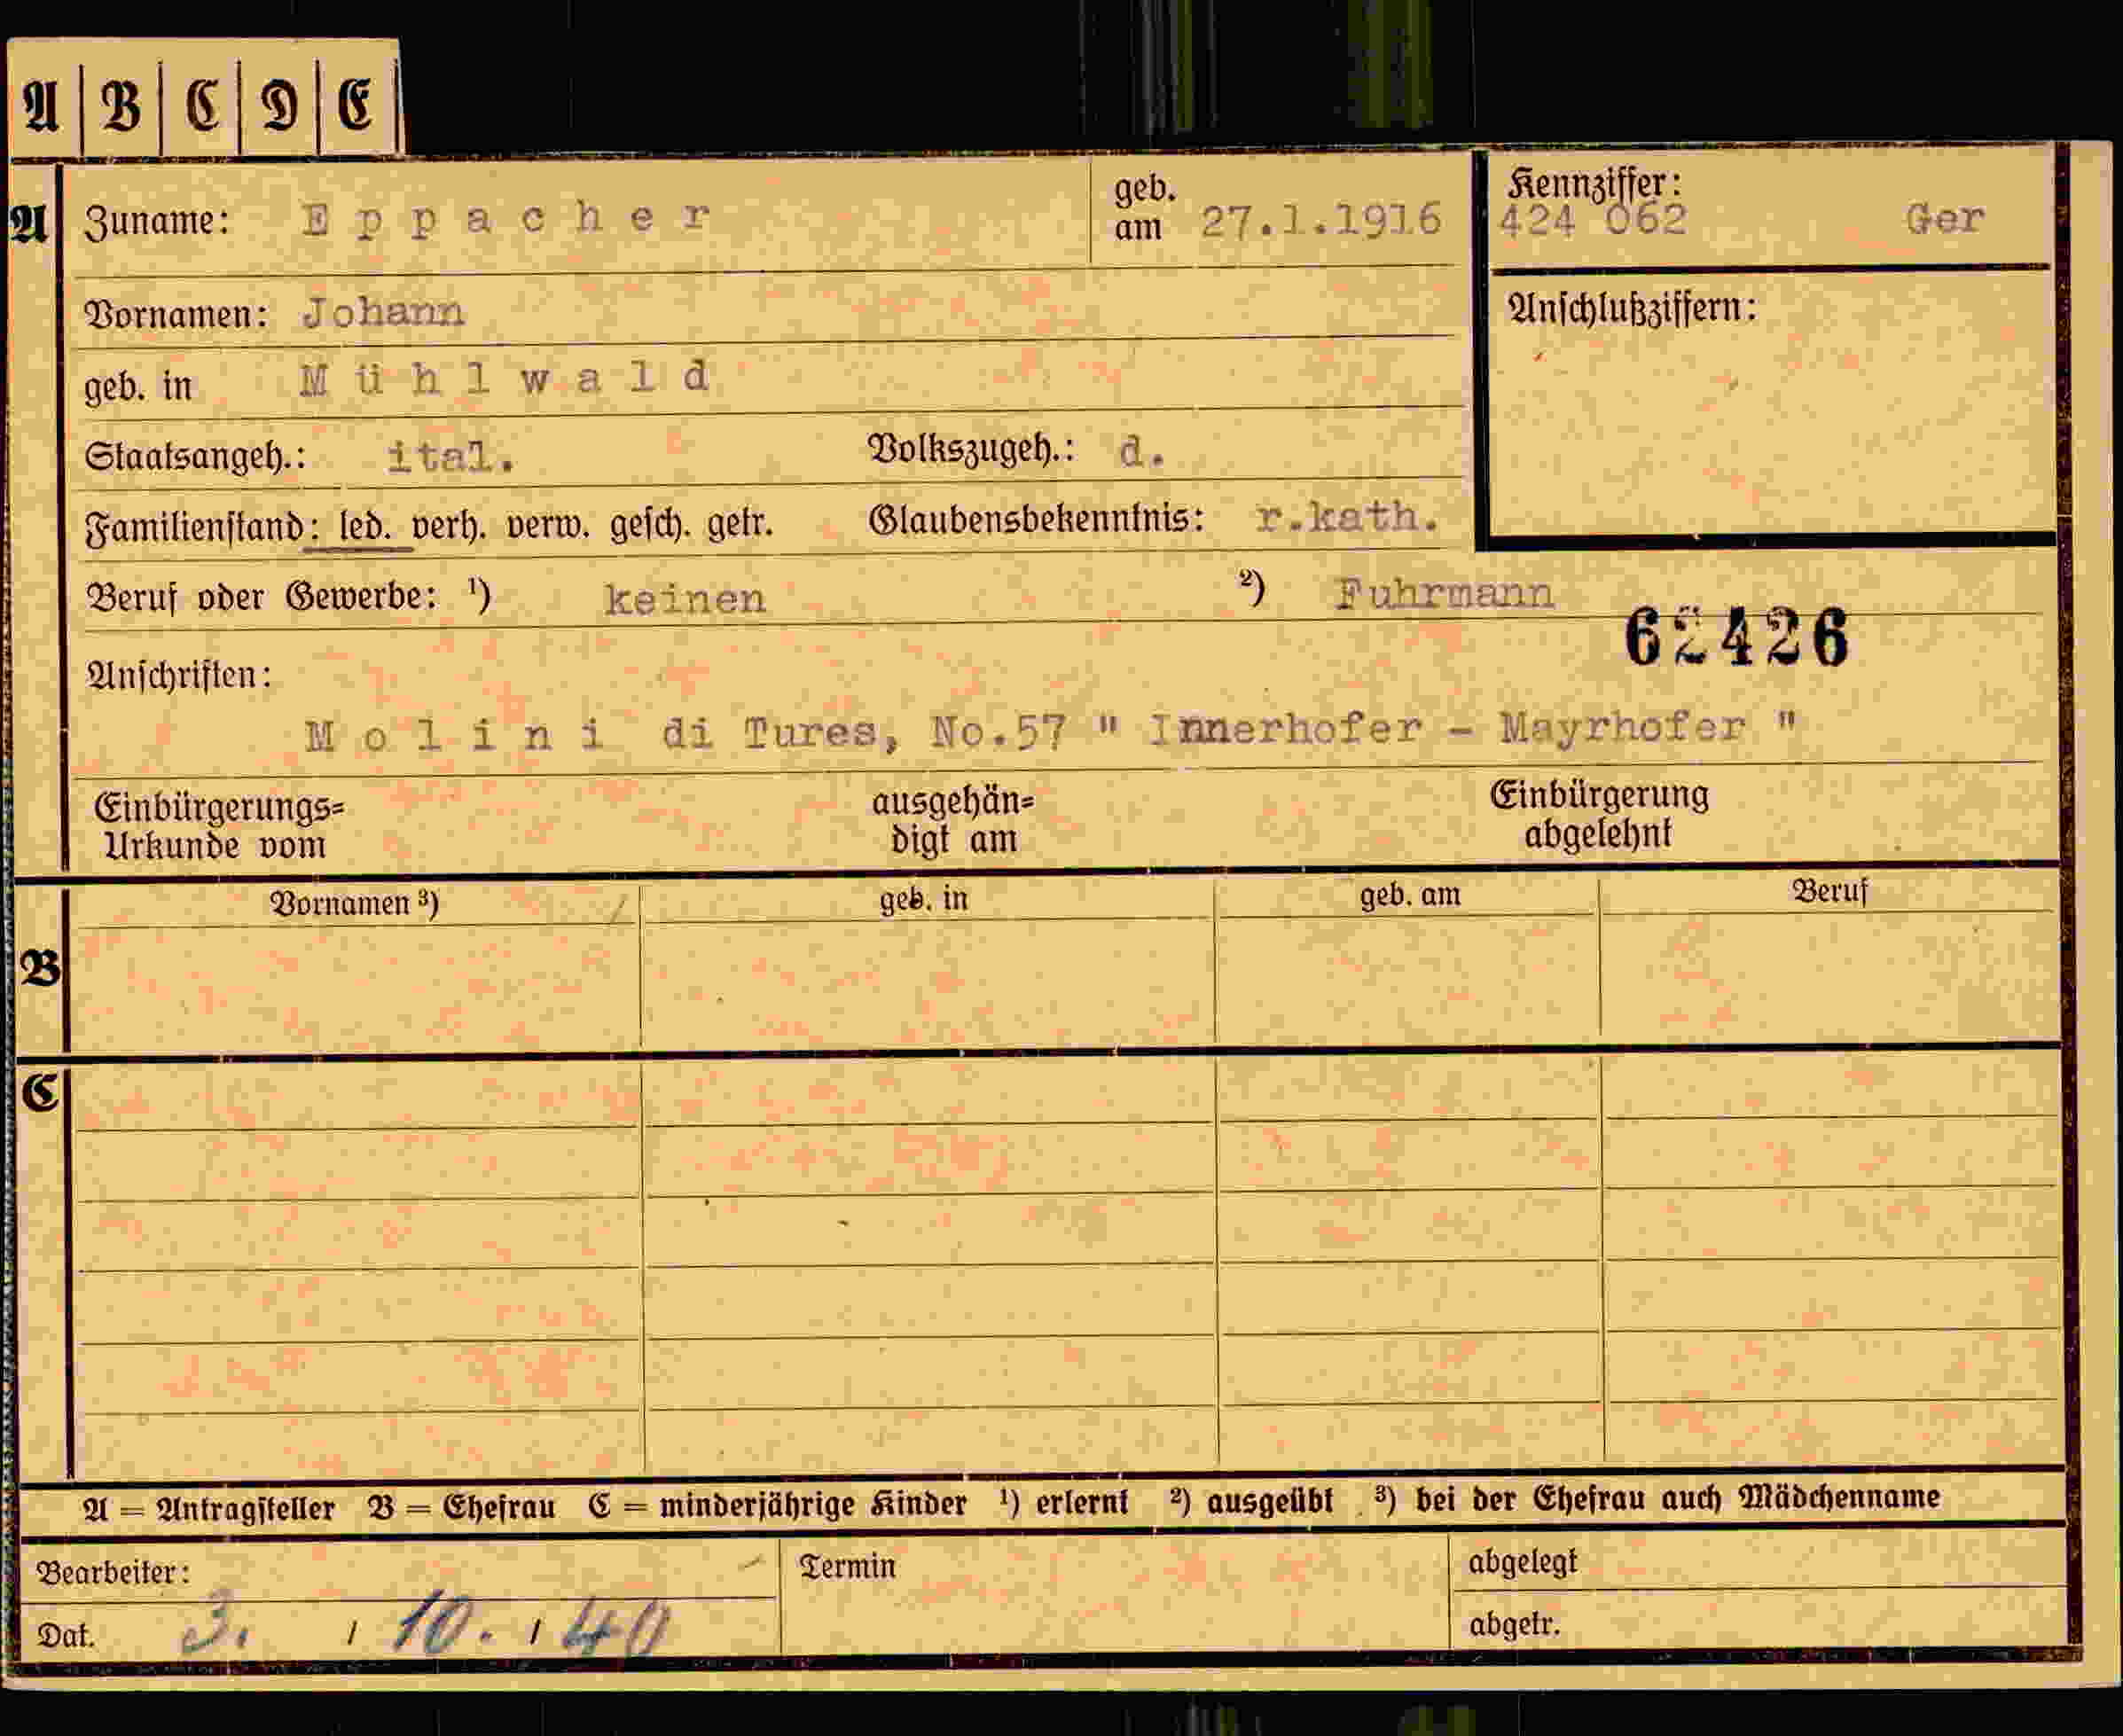 A B C D E
A Zuname: Eppacher geb. am 27.1.1916 Kennziffer: 424 062 Ger
Vornamen: Johann Anschlußziffern:
geb. in Mühlwald
Staatsangeh.: ital. Volkszugeh.: d.
Familienstand: led. verh. verw. gesch. getr. Glaubensbekenntnis: r.kath.
Beruf oder Gewerbe: ¹) keinen ²) Fuhrmann
62426
Anschriften:
Molini di Tures, No.57 " Innerhofer - Mayrhofer "
Einbürgerungs= ausgehän= Einbürgerung
Urkunde vom digt am abgelehnt
Vornamen ³) geb. in geb. am Beruf
B
C
A = Antragsteller B = Ehefrau C = minderjährige Kinder ¹) erlernt ²) ausgeübt ³) bei der Ehefrau auch Mädchenname
Bearbeiter: Termin abgelegt
Dat. 3. / 10. / 40 abgetr.